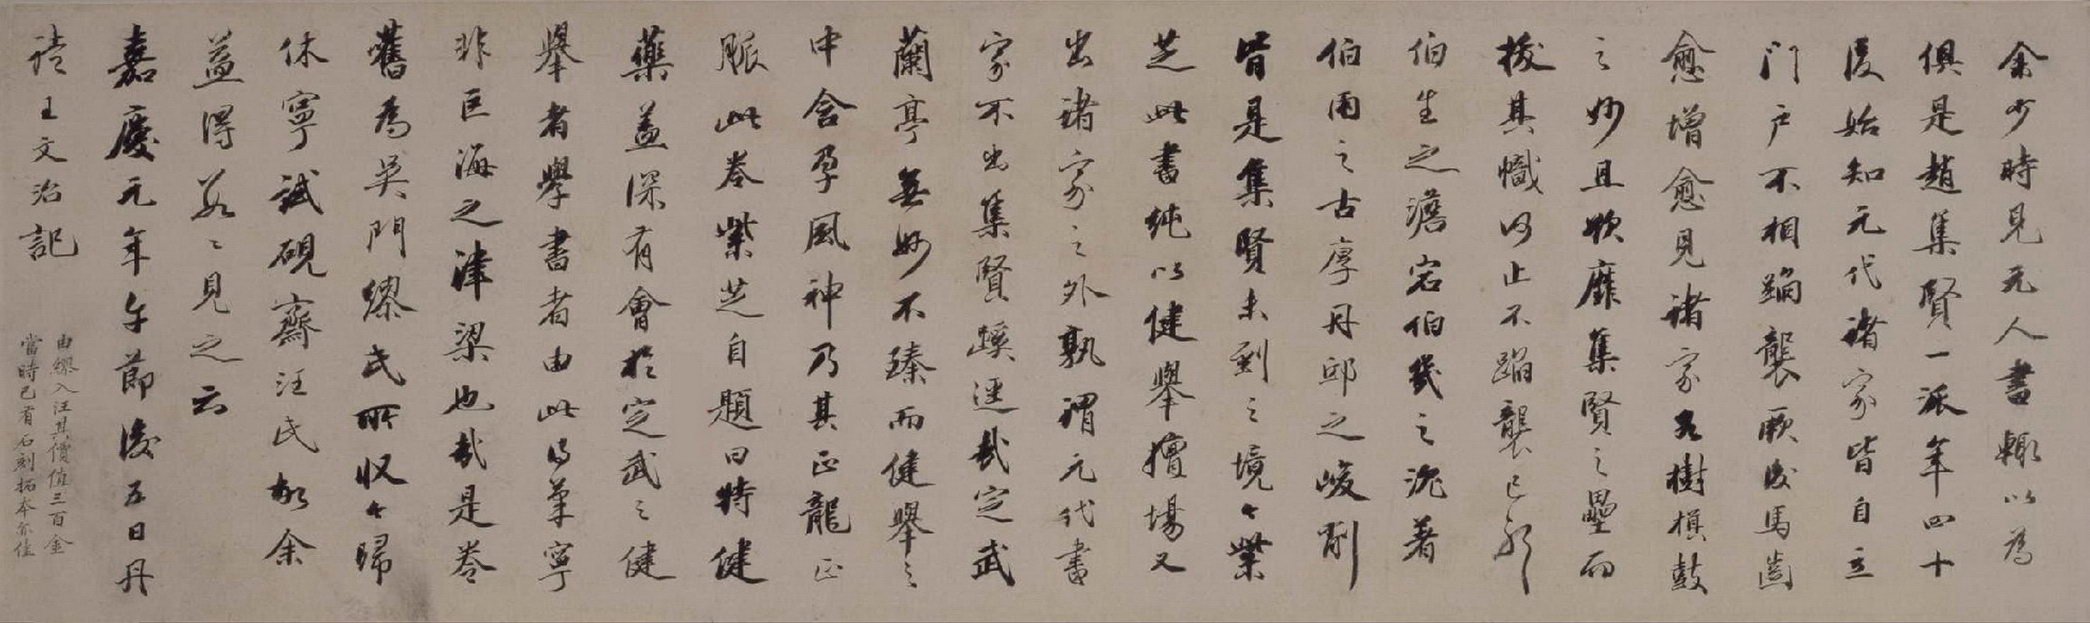 余少時見元人書輒以為
俱是趙集賢一派年四十
後始知元代諸家皆自立
門戶不相蹈襲厥後馬齒
愈增愈見諸家各樹損鼓
之妙且欲靡集賢之壘而
拔其幟何止不蹈襲已耶
伯生之澹宕伯幾之沉著
伯雨之古厚丹邱之峻削
皆是集賢未到之境々紫
芝此書純以健舉擅場又
出諸家之外孰謂元代書
家不出集賢蹊逕哉定武
蘭亭無妙不臻而健舉之
中含孕風神乃其正龍正
脈此卷紫芝自題曰特健
藥蓋深有會於定武之健
舉者學書者由此得筆寧
非巨海之津梁也哉是卷
舊為吳門繆氏所收今歸
休寧試硯齋汪氏故余
益得數々見之云
嘉慶元年午節後五日丹
徒王文治記
由繆入汪其價值三百金
當時已有石刻拓本亦佳